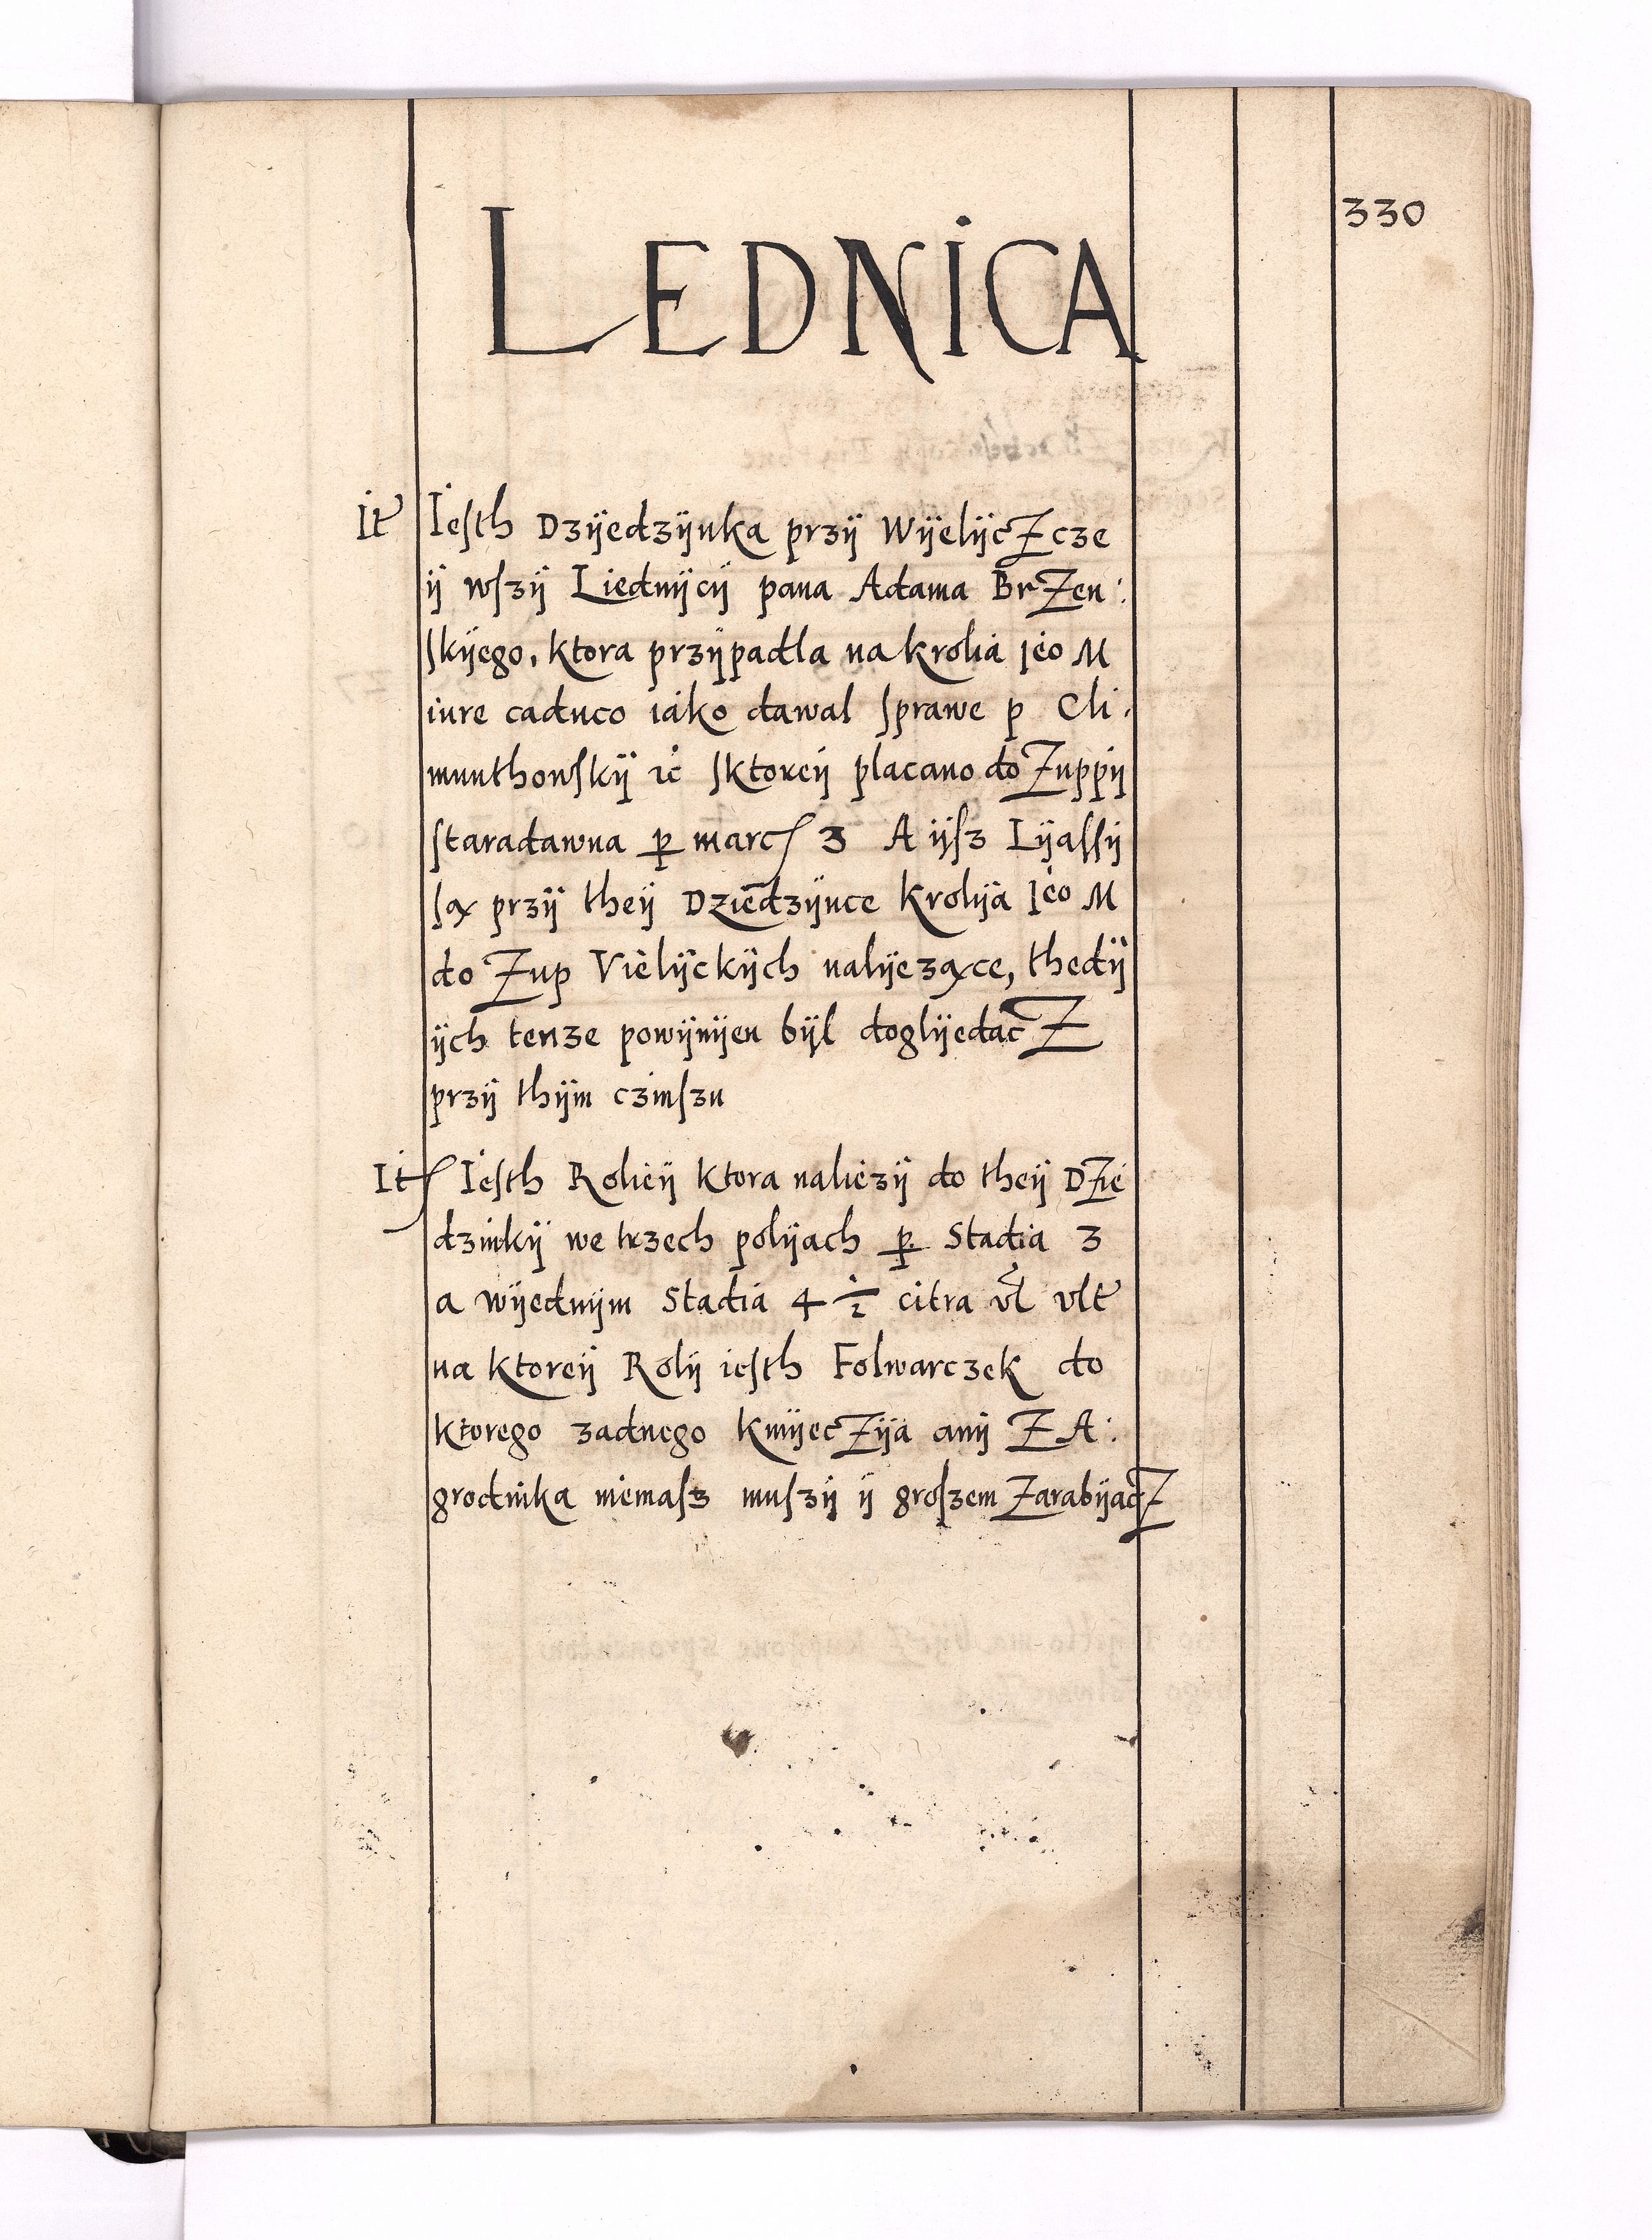 330
LEDNICA
It Iesth Dzÿedzÿnka przÿ WÿelÿcZcze
ÿ wſzÿ Liednÿcÿ pana Adama BrZen:
ſkÿego, ktora przÿpadla na krolia Ieo M
iure caduco iako dawal ſprawe p Cli.
munthowſkÿ ic ſktoreÿ placano do Zuppÿ
ſtaradawna ꝑ marc 3 A ÿſz Lÿaſſÿ
ſą przÿ theÿ Dziedzÿnce krolÿa Ieo M
do Zup Vielÿckÿch nalÿezące, thedÿ
ÿch tenze powÿnÿen bÿl doglÿedacZ
przÿ thÿm czinſzu
It Iesth Rolieÿ ktora naliezÿ do theÿ DZie
dzinkÿ we trzech polÿach ꝑ Stadia 3
a wÿednÿm Stadia 4 ½ citra vl vlt
na ktoreÿ Rolÿ iesth Folwarczek do
ktorego zadnego kmÿecZÿa anÿ ZA:
grodnika niemaſz muſzÿ ÿ groſzem ZarabÿacZ